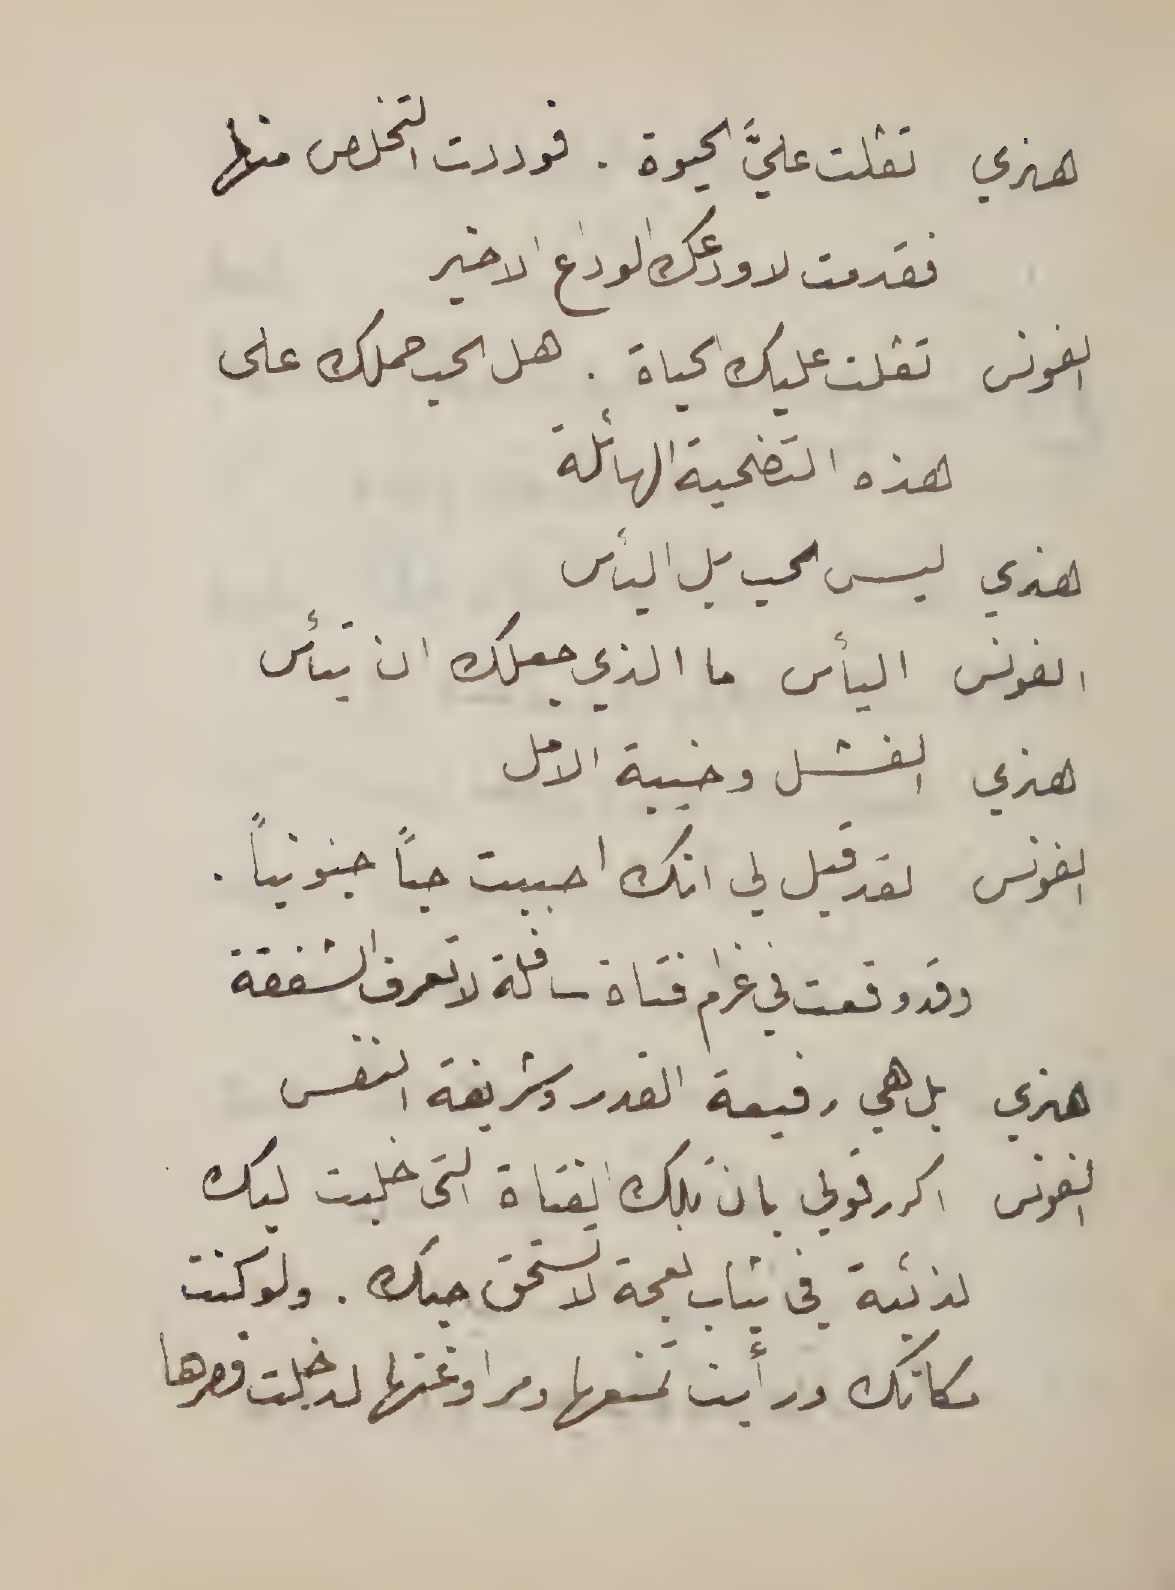 هنري ثقلت عليَّ الحيوة . فوددت التخلص منها
فقدمت لاودعك الوداع الاخير
الفونس ثقلت عليك الحياة . هل الحب حملك على
هذه التضحية الهائلة
هنري ليس الحب بل اليأس
الفونس اليأس ما الذي جعلك ان تيأس
هنري الفشل وخيبة الامل
الفونس لقد قيل لي انك احببت حباً جنونياً .
وقد وقعت في غرام فتاة سافلة لا تعرف الشفقة
هنري بل هي رفيعة القدر وشريفة النفس
الفونس اكرر قولي بان تلك الفتاة التي خلبت لبك
لذئبة في ثياب نعجة لا تستحق حبك . ولو كنت
مكانك ورأيت تمنعها ومراوغتها لدخلت قصرها